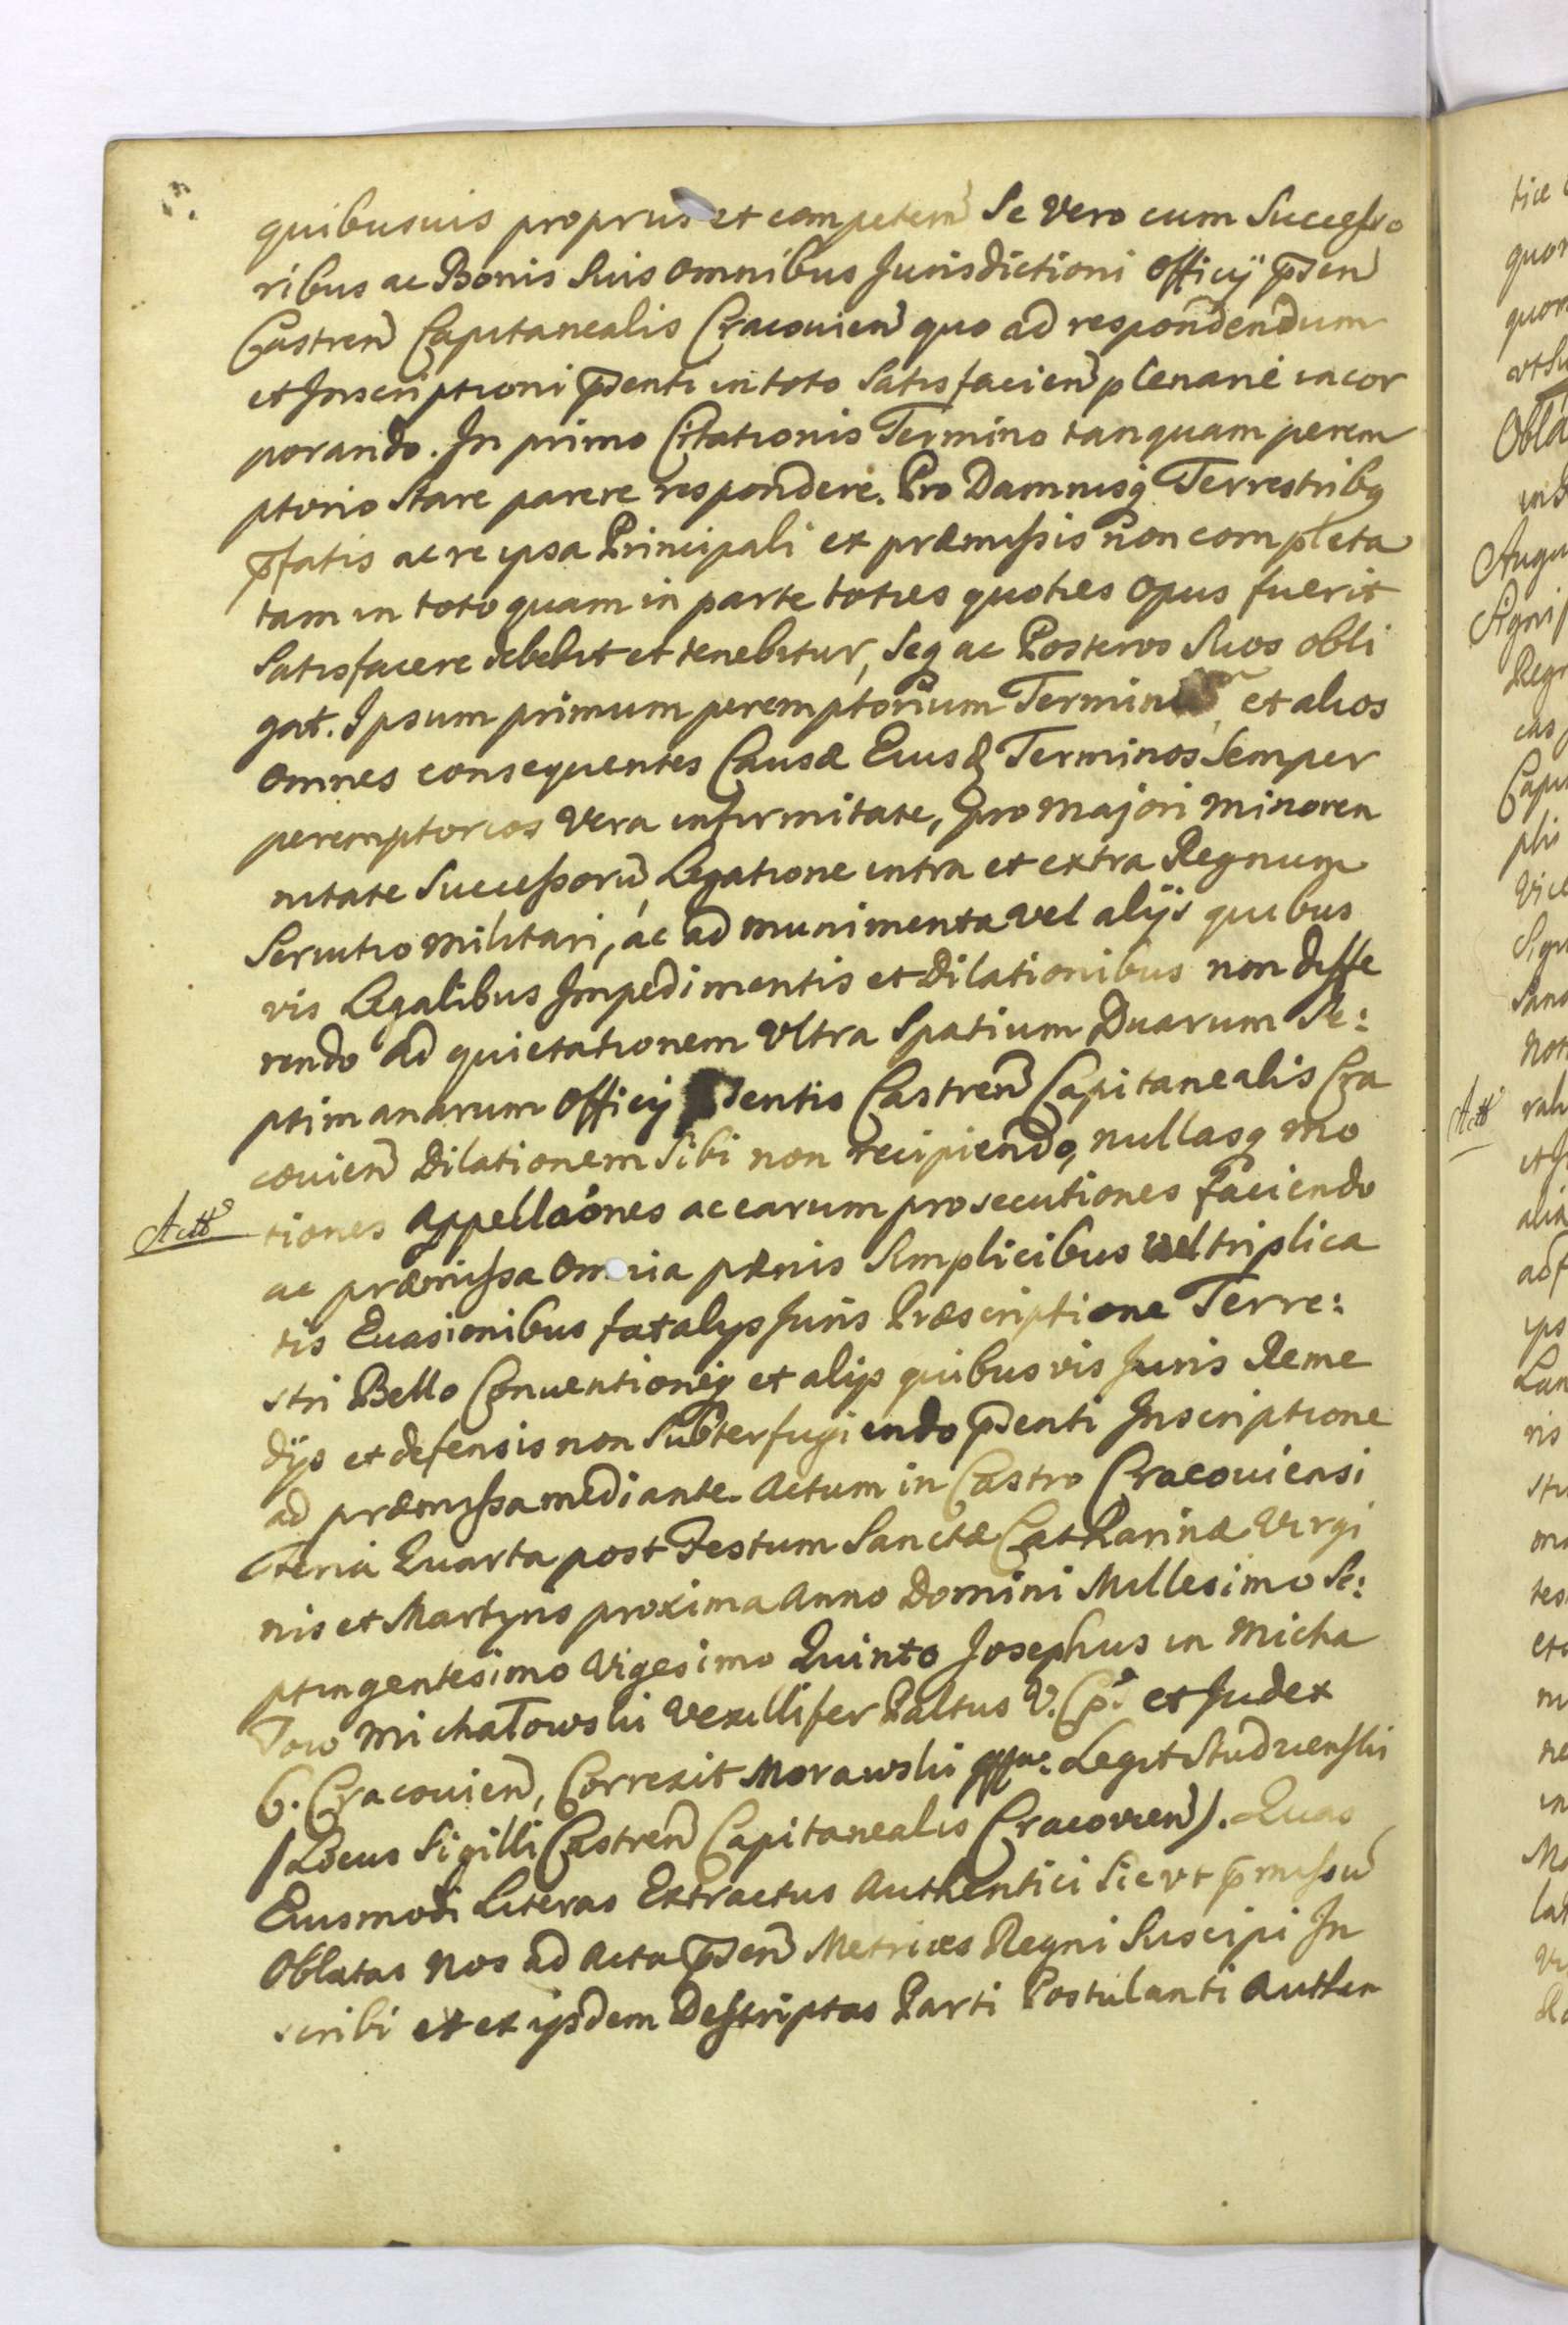 quibusuis proprijs et competen Se Vero cum Successo
ribus ac Bonis Suis omnibus Jurisdictioni Officij pñsen
Castren Capitanealis Cracouien quo ad respondendum
et Inscriptioni pñsenti in toto Satisfacien plenarié incor
porando. In primo Citationis Termino tanquam perem
ptorio Stare parere respondere. Pro Damnisq Terrestribq
pfatis ac re ipsa Principali et præmissis non completa
tam in toto quam in parte toties quoties opus fuerit
Satisfacere debebit et tenebitur, Seq ac Posteros Suos obli
gat. Ipsum primum peremptorium Terminũ et alios
omnes consequentes Causæ Eiusd Terminos Semper
peremptorios Vera infirmitate, Pro majori minoren
nitate Successorũ, Legatione intra et extra Regnum
Seruitio militari, ác ad munimenta vel alijs quibus
vis Legalibus Impedimentis et Dilationibus non diffe
rendo ad quietationem Vltra Spatium Duarum Se:
ptimanarum Officij pñsentis Castren Capitanealis Cra
couien Dilationem Sibi non recipiendo, nullasq mo
Actt
tiones Appellaönes ac earum prosecutiones faciendo
ac præmissa Omnia pænis Simplicibus vel triplica
tis Euasionibus fatalijs Juris Præscriptione Terre:
stri Bello Conuentioneq et alijs quibusvis Juris Reme
dijs et defensis non Subterfugiendo pñsenti Inscriptione
ad præmissa mediante. Actum in Castro Cracouiensi
Feria Quarta post Festum Sanctæ Catharinæ Virgi
nis et Martyris proxima Anno Domini Millesimo Se:
ptingentesimo Vigesimo Quinto Josephus in Micha
łow Michałowski Vexillifer Paltus V. Cp. et Judex
C. Cracouien, Correxit Morawski Legit Studzienski
/Locus Sigilli Castren Capitanealis Cracovien/. Quas
Eiusmodi Literas Extractus Authentici Sic vt pmissũ
Oblatas Nos ad Acta pñsen Metrices Regni Suscipi In
scribi et ex ijsdem Descriptas Parti Postulanti Authen